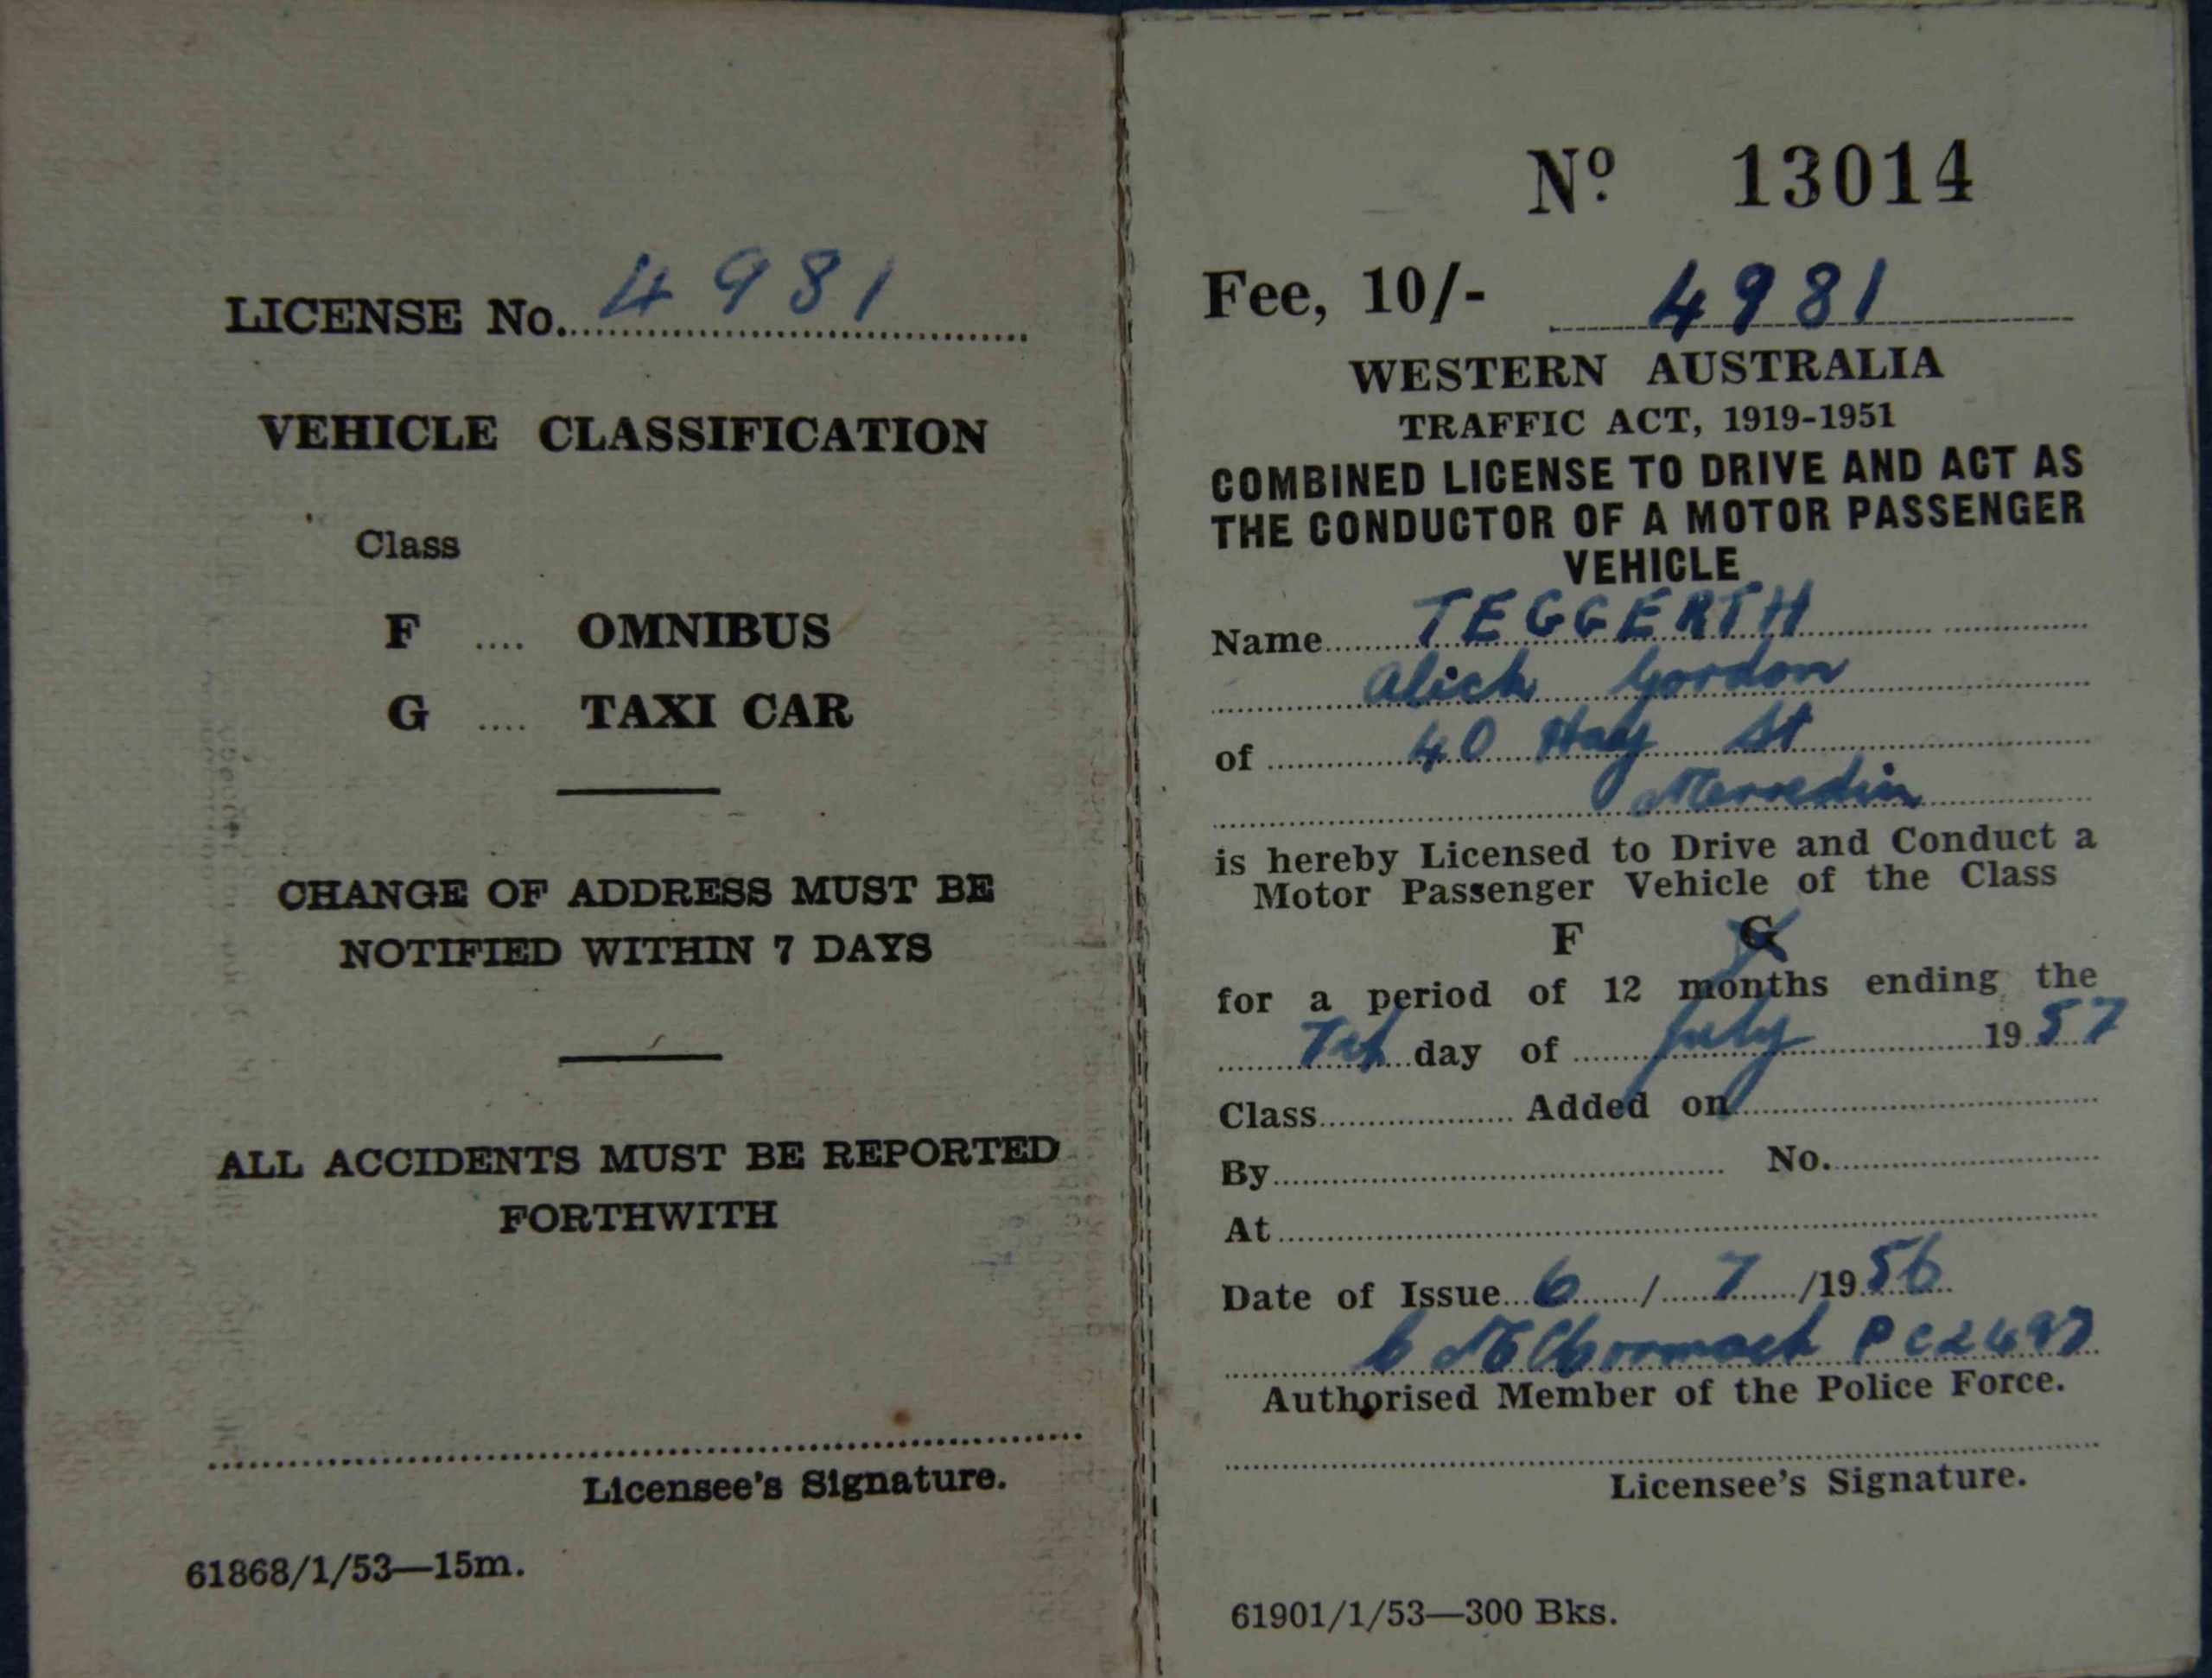 LICENSE No. 4981
VEHICLE CLASSIFICATION
Class
F .... OMNIBUS
G .... TAXI CAR
CHANGE OF ADDRESS MUST BE
NOTIFIED WITHIN 7 DAYS
ALL ACCIDENTS MUST BE REPORTED
FORTHWITH
Licensee's Signature.
61868/1/53—15m.
Nº 13014
Fee, 10/- 4981
WESTERN AUSTRALIA
TRAFFIC ACT, 1919-1951
COMBINED LICENSE TO DRIVE AND ACT AS
THE CONDUCTOR OF A MOTOR PASSENGER
VEHICLE
Name TEGGERTH
Alick Gordon
of 40 Hay St
Merredin
is hereby Licensed to Drive and Conduct a
Motor Passenger Vehicle of the Class
F G
for a period of 12 months ending the
7th day of July 1957
Class Added on
By No.
At
Date of Issue 6/7/1956
McCormack PC2497
Authorised Member of the Police Force.
Licensee's Signature.
61901/1/53—300 Bks.